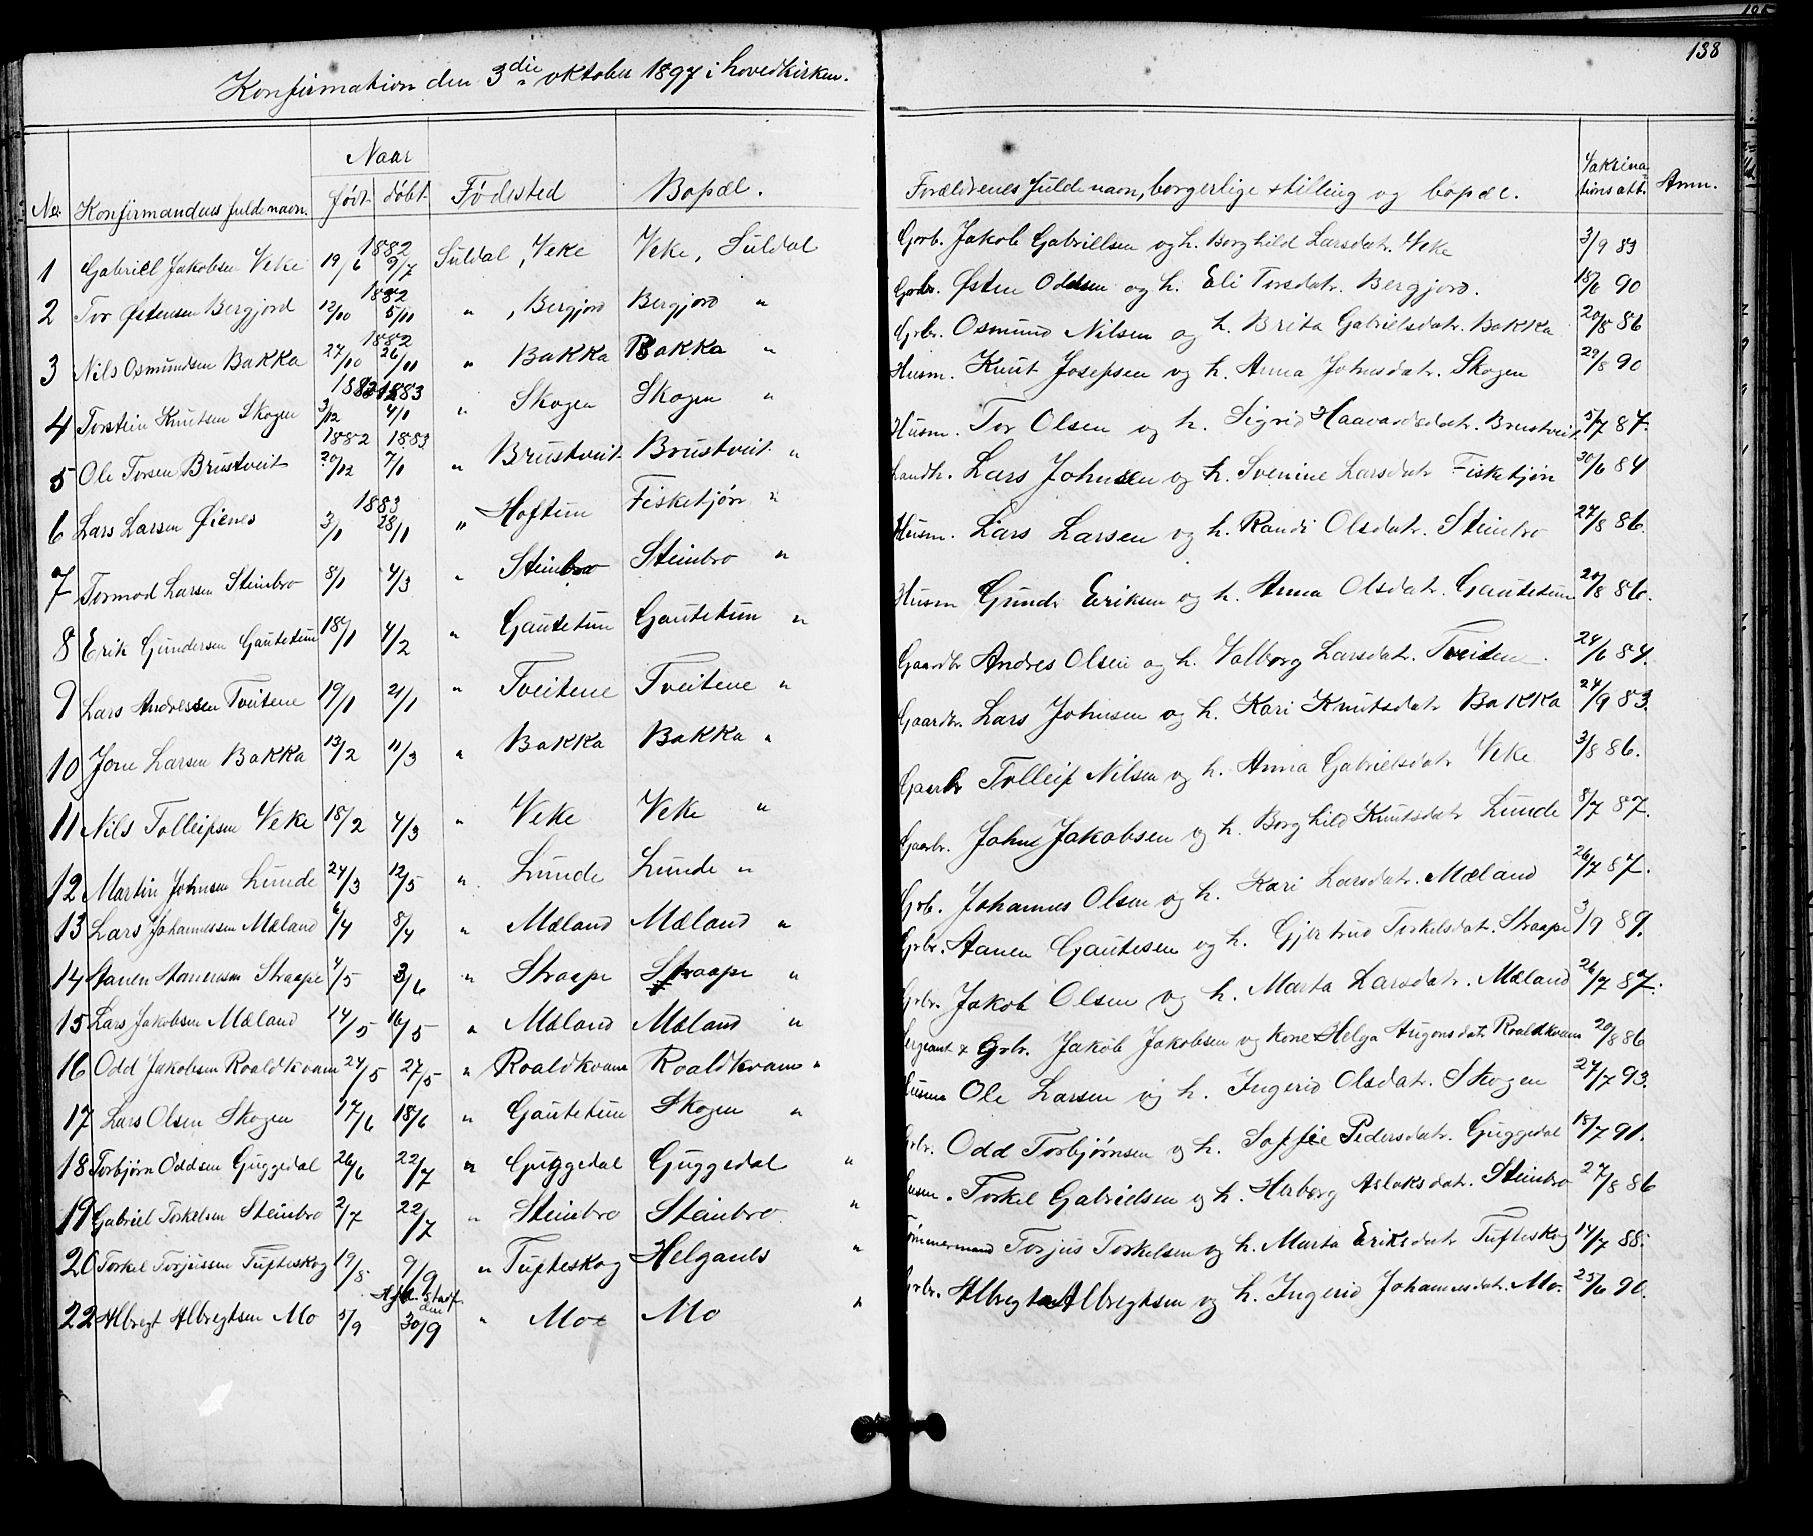 138
Konfirmation den 3die oktober 1897 i hovedkirken.
No. Konfirmandens fulde navn. Naar født. døbt. Fødested Bopæl. Forældrenes fulde navn, borgerlige stilling og bopæl. Vakcinationsatt. Anm.
1 Gabriel Jakobsen Veke 1882 19/6 9/7 Suldal, Veke Veke, Suldal Grb. Jakob Gabrielsen og h. Borghild Larsdatr. Veke 3/9 83
2 Tor Østensen Bergjord 1882 12/10 5/11 " , Bergjord Bergjord " Grbr. Østen Oddsen og h. Eli Torsdatr. Bergjord. 18/6 90
3 Nils Osmundsen Bakka 1882 27/10 26/11 " Bakka Bakka " Grbr. Osmund Nilsen og h. Brita Gabrielsdatr. Bakka 20/8 86
4 Torstein Knutsen Skogen 1882 1883 3/12 4/1 " Skogen Skogen " Husm. Knut Josepsen og h. Anna Johnsdatr. Skogen 29/8 90
5 Ole Torsen Brustveit 1882 1883 20/12 7/1 " Brustveit Brustveit " Husm. Tor Olsen og h. Sigrid Haavardsdatr. Brustveit 5/7 87.
6 Lars Larsen Øienes 1883 3/1 28/1 " Hoftun Fisketjøn " Landh. Lars Johnsen og h. Svenine Larsdatr Fisketjøn 30/6 84
7 Tormod Larsen Steinbro 8/1 4/3 " Steinbro Steinbro " Husm. Lars Larsen og h. Randi Olsdatr. Steinbro 27/8 86.
8 Erik Gundersen Gautetun 18/1 4/2 " Gautetun Gautetun " Husm Gundr Eriksen og h. Anna Olsdatr. Gautetun 20/8 86.
9 Lars Andressen Tveitene 19/1 21/1 " Tveitene Tveitene " Gaardbr Andres Olsen og h. Valborg Larsdatr. Tveiten 24/6 84.
10 Jone Larsen Bakka 13/2 11/3 " Bakka Bakka " Gaardbr. Lars Johnsen og h. Kari Knutsdatr Bakka 24/9 83.
11 Nils Tolleipsen Veke 18/2 4/3 " Veke Veke " Gaarbr Tolleip Nilsen og h. Anna Gabrielsdatr Veke 3/8 86.
12 Martin Johnsen Lunde 24/3 12/5 " Lunde Lunde " Gaarbr. John Jakobsen og h. Borghild Knutsdatr Lunde 8/7 87.
13 Lars Johannessen Mæland 6/4 8/4 " Mæland Mæland " Grb. Johannes Olsen og h. Kari Larsdatr. Mæland 26/7 87.
14 Aanen Aanensen Straape 4/5 3/6 " Straape Straape " Grbr. Aanen Gautesen og h. Gjertrud Torkelsdatr. Straape 3/9 89.
15 Lars Jakobsen Mæland 14/5 16/5 " Mæland Mæland " Grbr. Jakob Olsen og h. Marta Larsdatr. Mæland 26/7 87.
16 Odd Jakobsen Roaldkvam 24/5 27/5 " Roaldkvam Roaldkvam " Sergeant & Grbr. Jakob Jakobsen og kone Helga Augonsdatr Roaldkvam 20/8 86
17 Lars Olsen Skogen 17/6 18/6 " Gautetun Skogen " Husm Ole Larsen og h. Ingerid Olsdatr. Skogen 27/7 93.
18 Torbjørn Oddsen Guggedal 26/6 22/7 " Guggedal Guggedal " Grbr. Odd Torbjørnsen og h. Soffie Pedersdatr. Guggedal 18/7 91.
19 Gabriel Torkelsen Steinbro 2/7 22/7 " Steinbro Steinbro. " Husm. Torkel Gabrielsen og h. Herborg Aslaksdatr. Steinbro 27/8 86
20 Torkel Torjussen Tufteskog 19/8 9/9 " Tufteskog Helganes " Tømmermand Torjus Torkelsen og h. Marta Eriksdatr Tufteskog 14/7 88.
22 Albregt Albregtsen Mo 5/9 30/9 " Mo Mo " Grbr. Albregt Albregtsen og h. Ingerid Johannesdatr. Mo. 25/6 90.